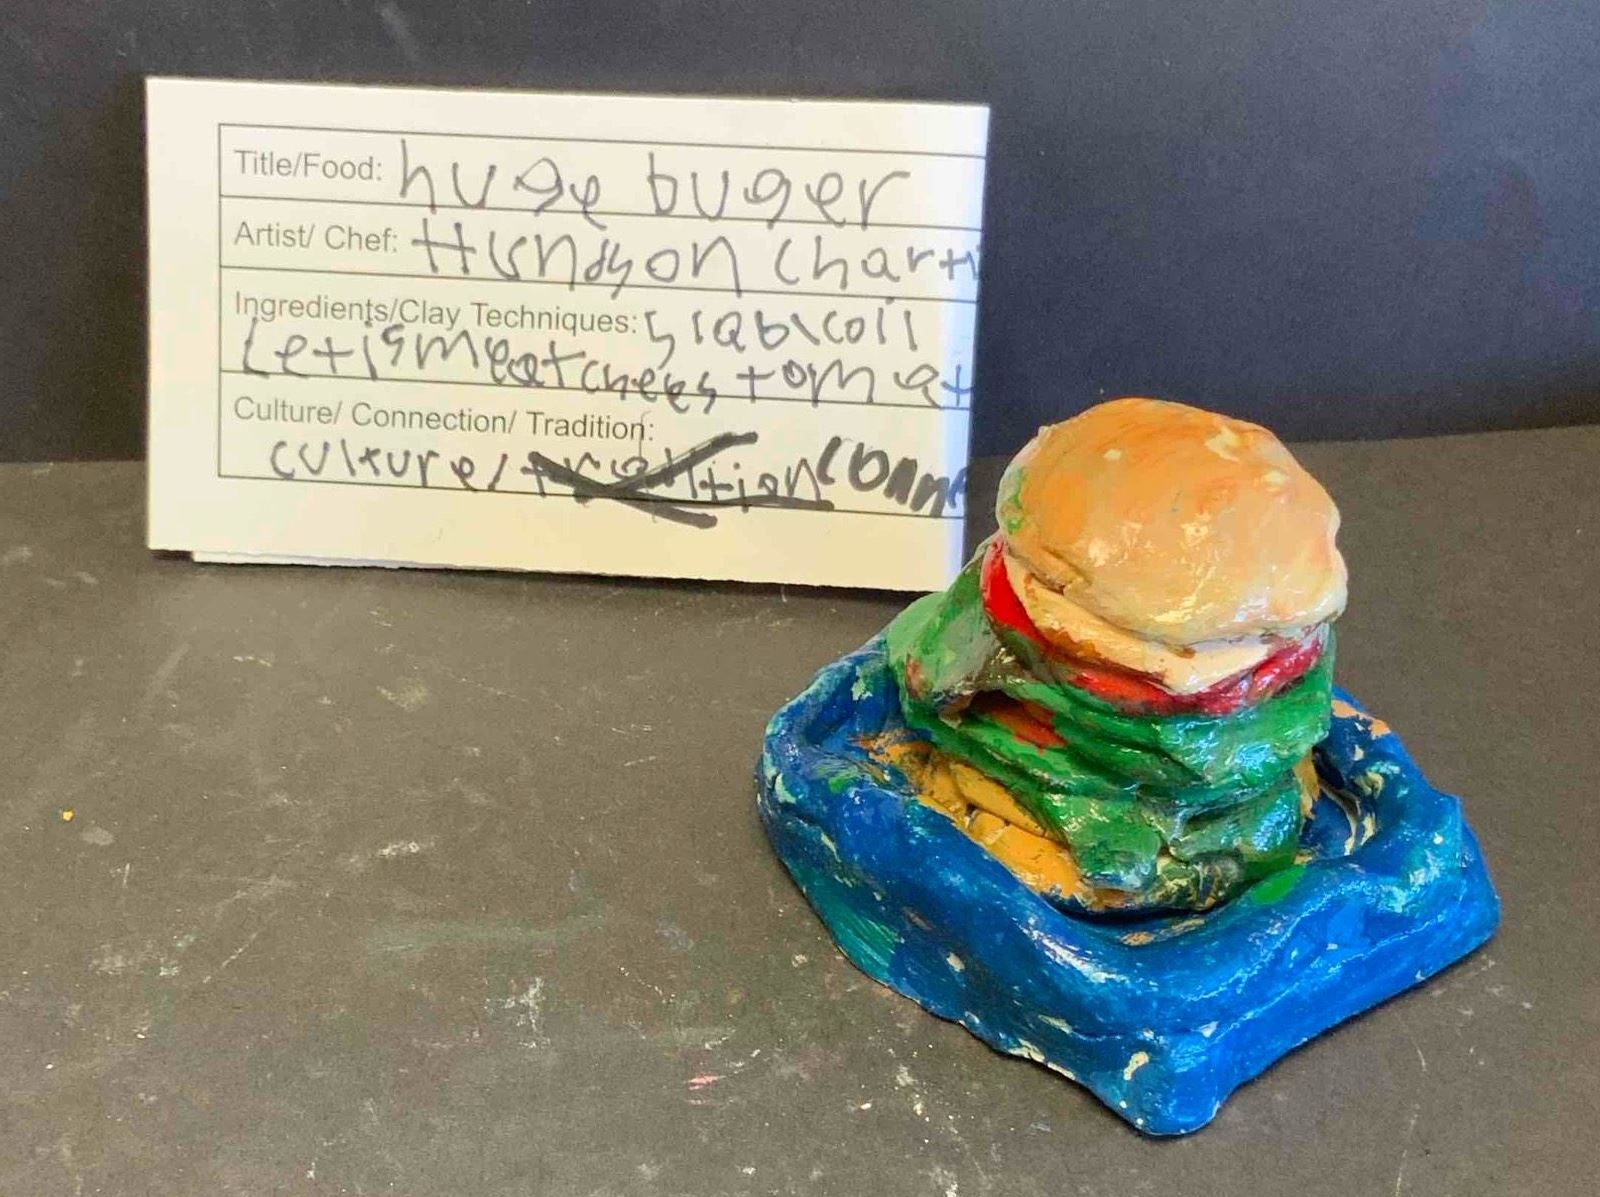 Title/Food: huge buger
Artist/ Chef:
Ingredients/Clay Techniques: slab\coil
Letis meat chees tomat
Culture/ Connection/ Tradition:
culture/ conne